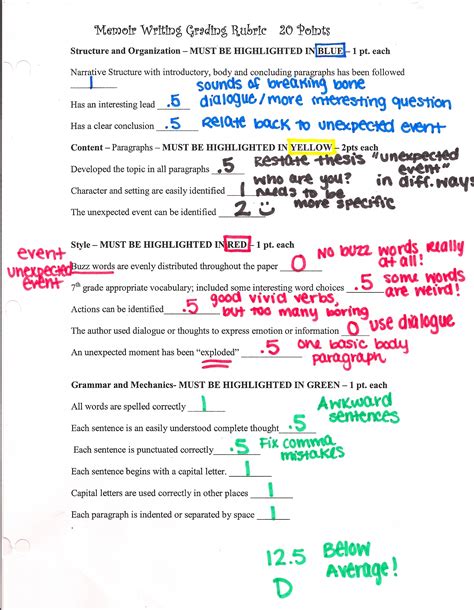 Memoir Writing Grading Rubric    20 Points
Structure and Organization – MUST BE HIGHLIGHTED IN BLUE – 1 pt. each
Narrative Structure with introductory, body and concluding paragraphs has been followed
1 sounds of breaking bone
Has an interesting lead .5 dialogue/more interesting question
Has a clear conclusion .5 Relate back to unexpected event
Content – Paragraphs – MUST BE HIGHLIGHTED IN YELLOW – 2pts each
Developed the topic in all paragraphs .5 Restate thesis "unexpected event" in diff. ways
Character and setting are easily identified 1 who are you? needs to be more specific
The unexpected event can be identified 2
Style – MUST BE HIGHLIGHTED IN RED – 1 pt. each
event
unexpected event
Buzz words are evenly distributed throughout the paper 0 No buzz words really at all!
7th grade appropriate vocabulary; included some interesting word choices .5 some words are weird!
Actions can be identified .5 good vivid verbs, but too many boring
The author used dialogue or thoughts to express emotion or information 0 use dialogue
An unexpected moment has been "exploded" .5 one basic body paragraph
Grammar and Mechanics- MUST BE HIGHLIGHTED IN GREEN – 1 pt. each
All words are spelled correctly 1
Each sentence is an easily understood complete thought .5 Awkward sentences
Each sentence is punctuated correctly .5 Fix comma mistakes
Each sentence begins with a capital letter. 1
Capital letters are used correctly in other places 1
Each paragraph is indented or separated by space 1
12.5 Below
D Average!